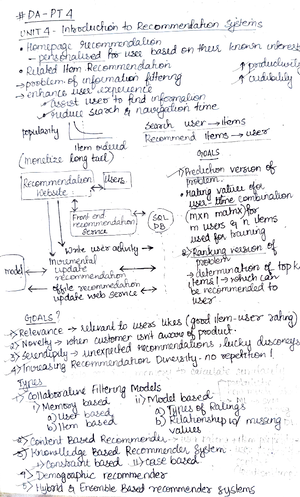 # DA-PT 4
UNIT 4 - Introduction to Recommendation Systems
• Homepage recommendation
- personalised for user based on their known interest
• Related Item Recommendation
↑ productivity
↑ credibility
→ problem of information filtering
→ enhance user experience
- assist user to find information
- reduce search & navigation time
popularity
item ordered
(monetize long tail)
Search user → items
Recommend items → user
Recommendation Website
Users
Front end recommendation service
SQL DB
Write user activity
model
Incremental update recommendation
offline recommendation update web service
GOALS
1) Prediction version of problem
• Rating values for user item combination
(mxn matrix) for
m users & n items
used for training
2) Ranking version of problem
→ determination of top k
items! → which can
be recommended to
user
GOALS?
1) Relevance → relevant to users likes (good item-user rating)
2) Novelty → when customer isn't aware of product.
3) Serendipity → unexpected recommendations, lucky discoveries
4) Increasing Recommendation Diversity - no repetition!
Types
1) Collaborative Filtering Models
i) Memory based
a) User based
b) Item based
ii) Model based
a) Types of Ratings
b) Relationship w/ missing values
2) Content Based Recommender
3) Knowledge Based Recommender System
i) Constraint based ii) case based
4) Demographic recommender
5) Hybrid & Ensemble Based recommender systems